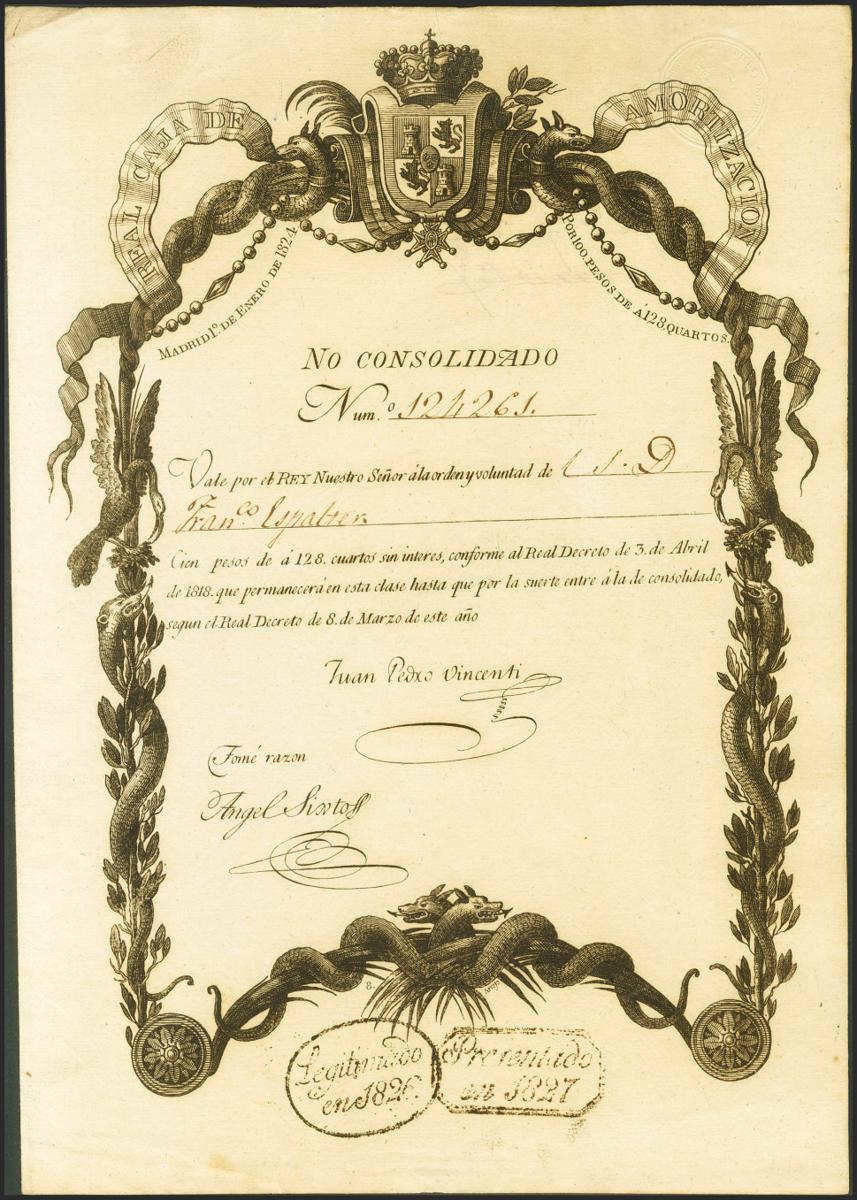 REAL CAJA DE AMORTIZACION
MADRID 1º. DE ENERO DE 1824.
POR 100. PESOS DE Á 128. QUARTOS.
NO CONSOLIDADO
Num.º 124261.
Vale por el REY Nuestro Señor á la orden y voluntad de l S. D
Fran.co Espalter
Cien pesos de á 128. cuartos sin interes, conforme al Real Decreto de 3. de Abril
de 1818. que permanecerá en esta clase hasta que por la suerte entre á la de consolidado,
segun el Real Decreto de 8. de Marzo de este año
Juan Pedro Vincenti
Tomé razon
Angel Sixto
Legitimado
en 1826.
Presentado
en 1827